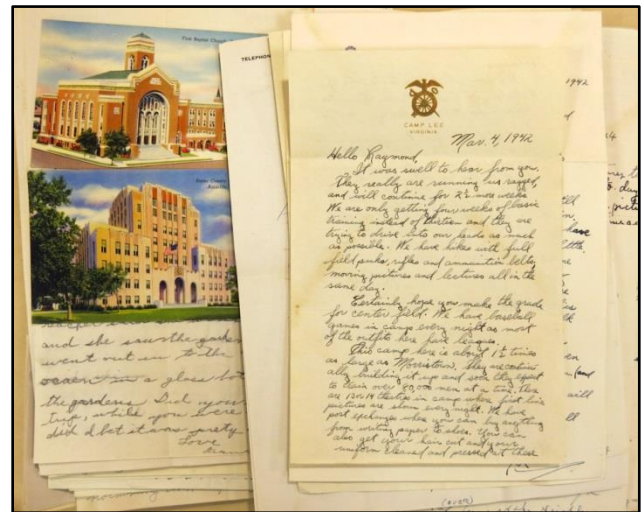 First Baptist Church
TELEPHON
CAMP LEE
VIRGINIA
Mar. 4, 1942
Hello Raymond,
It was swell to hear from you.
They really are running us ragged,
and will continue for 2½ more weeks.
We are only getting four weeks of basic
training instead of thirteen and they are
trying to drive into our heads as much
as possible. We have hikes with full
field packs, rifles and ammunition belts,
moving pictures and lectures all in the
same day.
Certainly hope you make the grade
for center field. We have baseball
games in camp every night as most
of the outfits here have leagues.
This camp here is about 1½ times
as large as Morristown, they are continu
ally building it up and soon they expect
to train over men at a time, there
are 13 or 14 theatres in camp where first line
pictures are shown every night. We have
post exchanges where you can buy anything
from writing paper to shoes. You can
also get your hair cut and your
uniform cleaned and pressed at these
(over)
and she saw the garden
went out in to the
ocean in a glass bo
the gardens Did you
trip, while you were
did I bet it was pretty
Love
1942
have
will